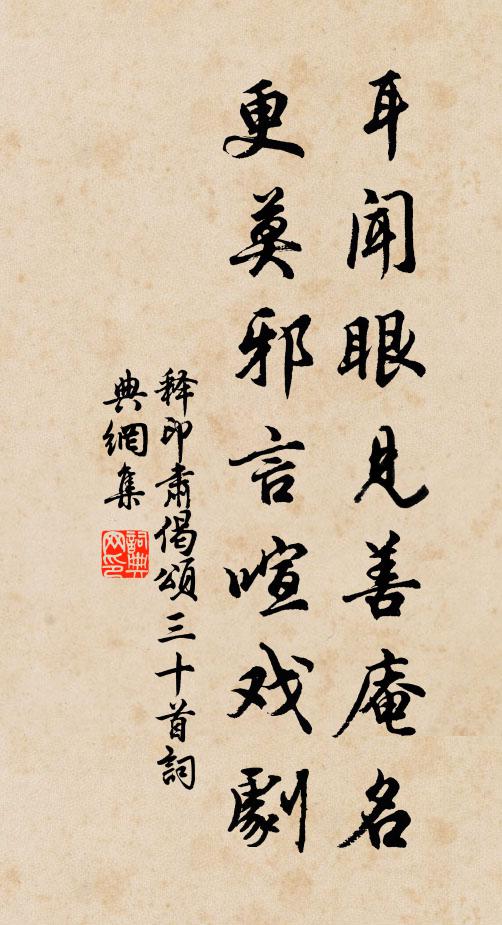 耳闻眼见善庵名
更莫邪言喧戏劇
释印肃偈頌三十首詞
典網集
詞典网印